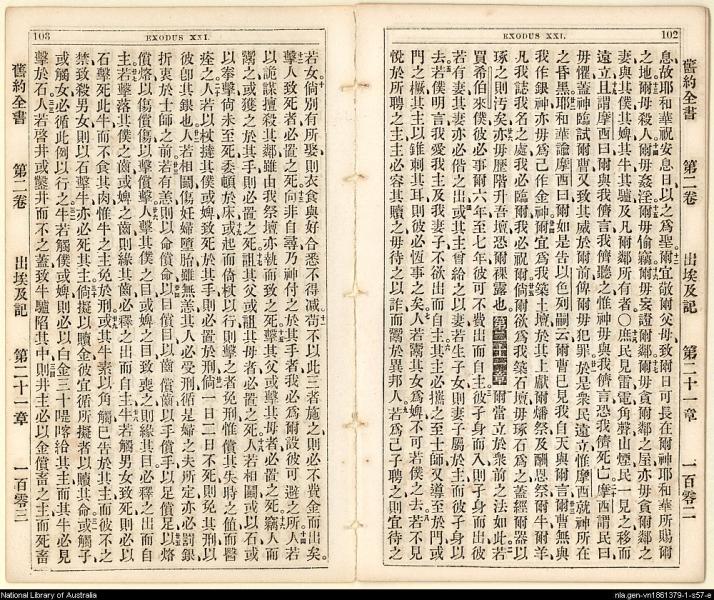 102
EXODUS XXI.
舊約全書 第二卷 出埃及記 第二十一章 一百零二
息故耶和華祝安息日以之爲聖爾宜敬爾父母致爾日可長在爾神耶和華所賜爾
之地爾毋殺人爾毋姦淫爾毋偷竊爾毋妄證爾鄰爾毋貪爾鄰之屋亦毋貪爾鄰之
妻與其僕其婢其牛其驢及凡爾鄰所有者○庶民見雷電角聲山煙民一見之移而
遠立且謂摩西曰爾與我儕言我儕聽之惟神毋與我儕言恐我儕死亡摩西謂民曰
毋懼蓋神臨試爾曹又致其威於爾前俾爾毋犯罪於是衆民遠立惟摩西就神所在
之昏黑耶和華諭摩西曰爾如是告以色列嗣云爾曹已見我自天與爾言爾曹無與
我作銀神亦毋爲己作金神爾宜爲我築土壇於其上獻爾燔祭及酬恩祭爾牛爾羊
凡我誌我名之處我必臨爾我必祝爾倘爾欲爲我築石壇毋琢石爲之蓋經爾器以
琢之則汚矣亦毋歷階升吾壇恐爾裸露也第二十一章爾當立於衆前之法如此若
買希伯來僕彼必事爾六年至七年彼可不費出而自主彼孑身而入則孑身而出彼
若有妻其妻亦必偕之出或其主曾給之以妻若生子女則妻子屬於主而彼孑身以
去若僕明言我愛我主及我妻子不欲出而自主其主必攜之至士師又導至於門或
門之橛其主以錐刺其耳則彼必恆事之矣人若鬻其女爲婢不可若僕之去若不見
悅於所聘之主主必容其贖之毋待之以詐而鬻於異邦人若爲己子聘之則宜待之
108
EXODUS XXI.
若女倘別有所娶則衣食與好合悉不得減苟不以此三者施之則必不費金而出矣
擊人致死者必置之死向非自尋乃神付之於其手者我必爲爾設彼可避之所人若
以詭謀擅殺其鄰雖由我祭壇亦執而致之死擊其父或擊其母者必置之死竊人而
鬻之或獲之於其手則必置之死詛其父或詛其母者必置之死人若相鬩或以石或
以拳擊倘未至死委頓於床或起而倚杖以行則擊之者免刑惟償其失時之値而醫
痊之人若以杖撻其僕或婢致死於其手則必置於刑倘一日二日不死則免其刑以
彼卽其銀也人若相鬩傷妊婦墮胎雖無恙其人必受刑循是婦之夫所定亦必罰銀
折衷於士師之前若有恙則以命償命以目償目以齒償齒以手償手以足償足以烙
償烙以傷償傷以擊償擊人擊其僕之目或婢之目致喪之則緣其目必釋之出而自
主若擊落其僕之齒或婢之齒則緣其齒必釋之出而自主牛若觸男女致死則必以
石擊死此牛而不食其肉惟牛之主免於刑或其牛素以角觸已告於其主而彼不之
禁致殺男女則以石擊牛亦必死其主倘擬以贖金彼宜循所擬者以贖其命或觸子
或觸女必循此例以行之牛若觸僕或婢則必以白金三十𠸄喀給其主而其牛必見
擊於石人若啓井或鑿井而不之蓋致牛驢陷其中則井主必以金償畜之主而死畜
舊約全書 第二卷 出埃及記 第二十一章 一百零三
National Library of Australia
nla.gen-vn1861379-1-s57-e